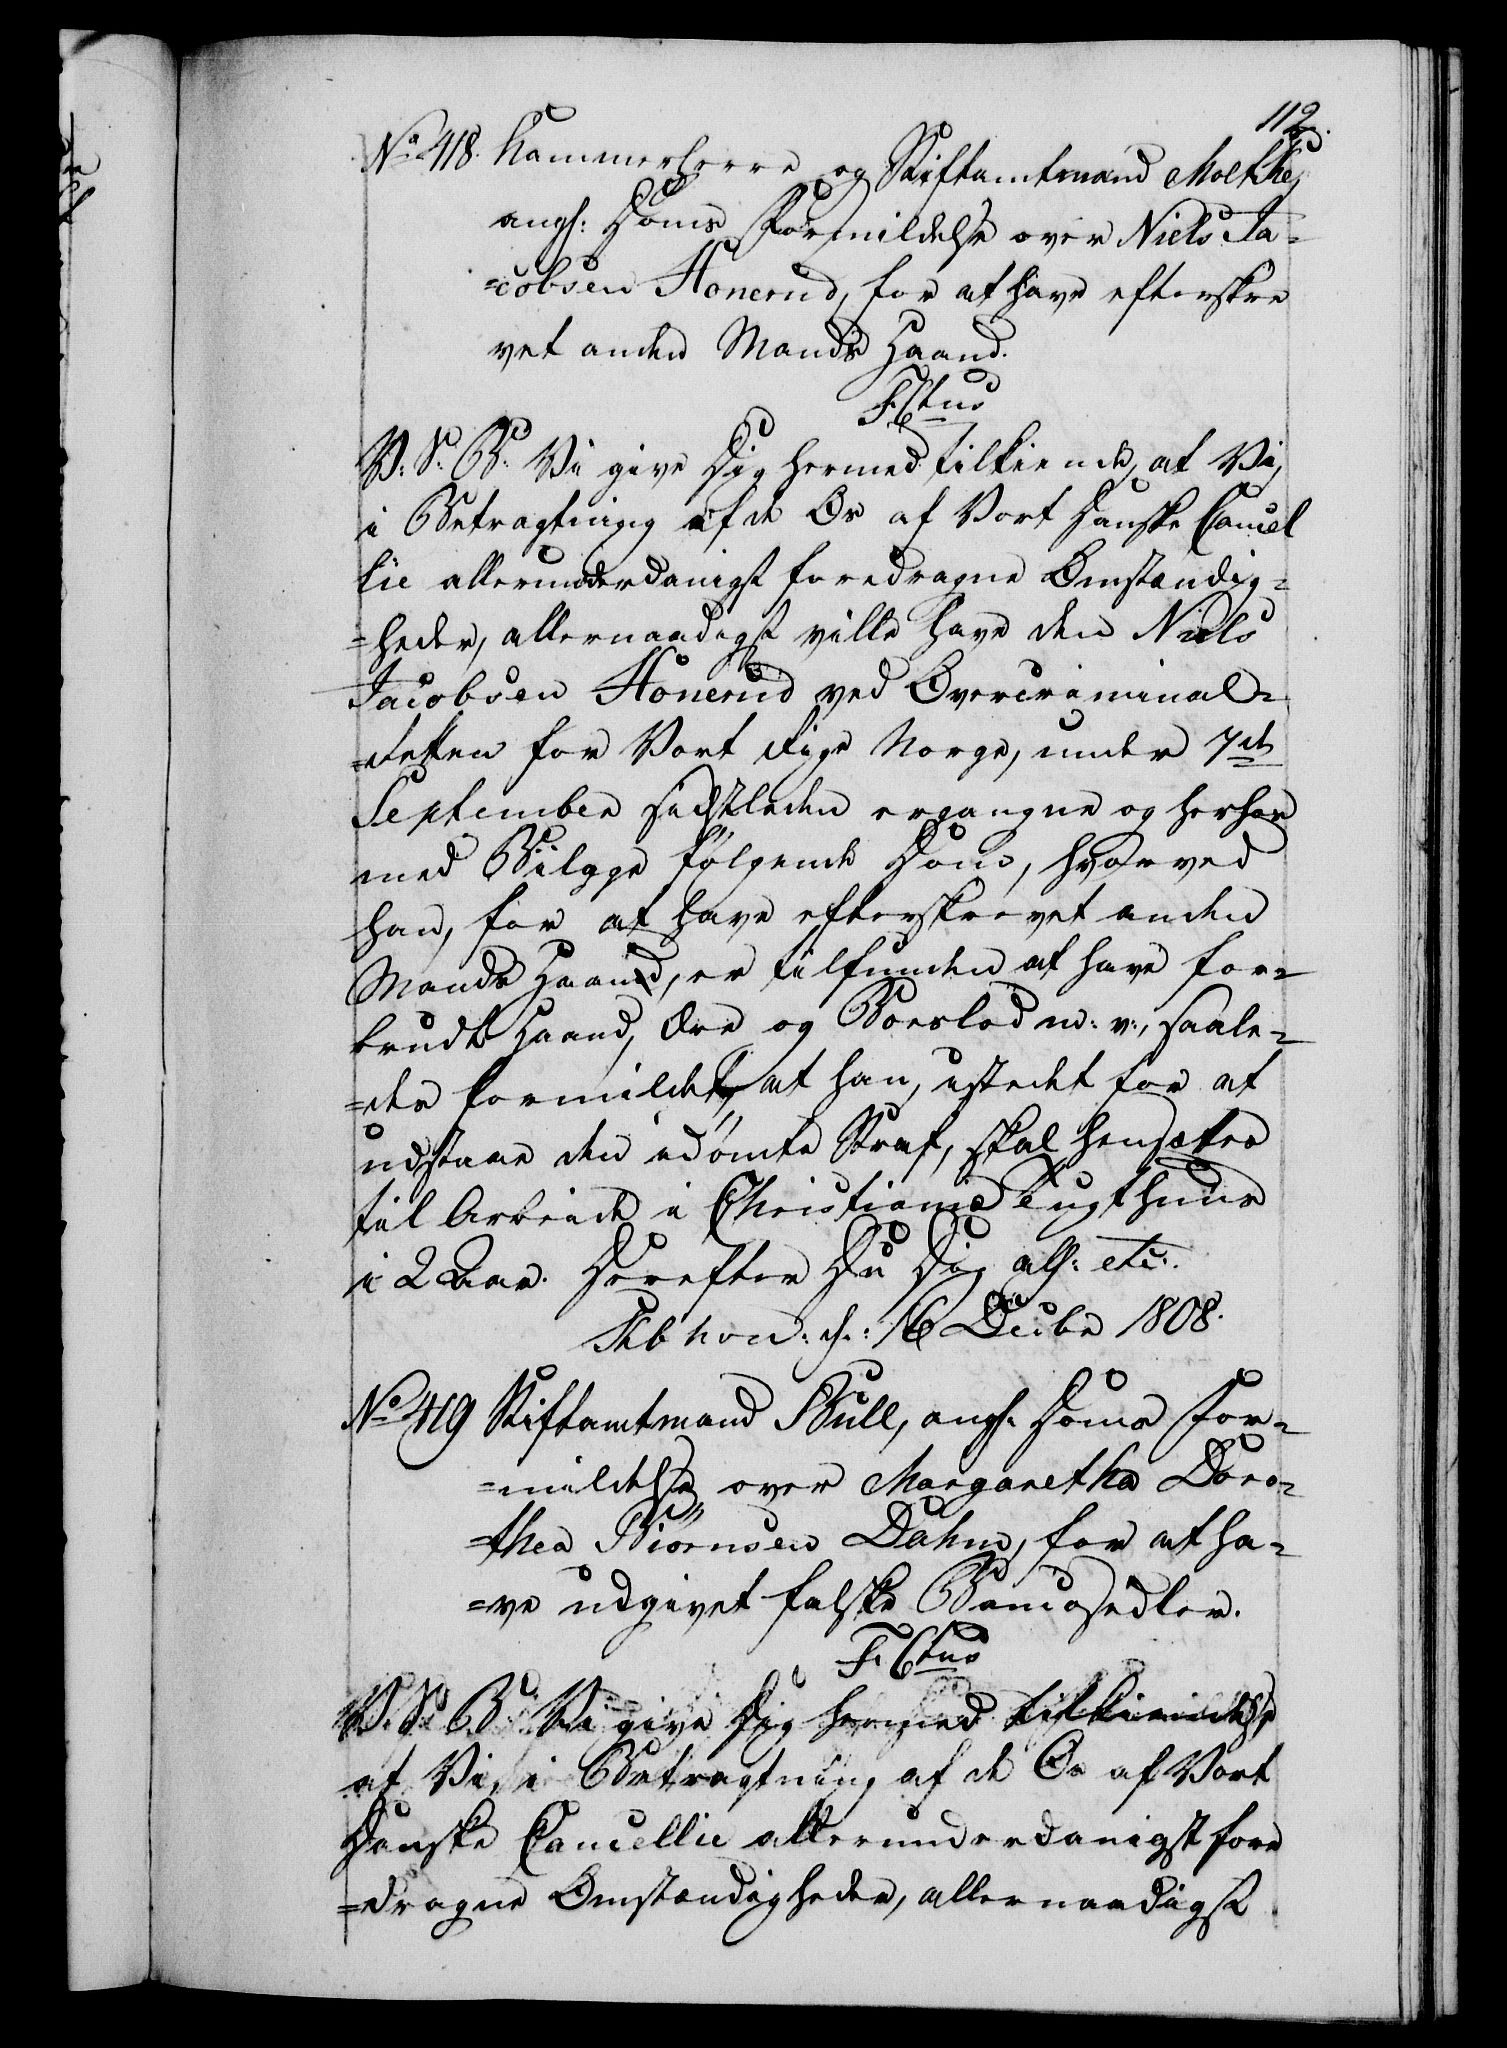 112.
No 418. Kammerherre og Stiftamtmand Moltke,
angl: Doms Formildelse over Niels Ja-
=cobsen Honerud, for at have efterskre
vet anden Mands Haand.
F. 6tus
V: S: G: Vi give Dig hermed tilkiende, at Vi,
i Betragtning af de Os af Vort Danske Cancel
lie allerunderdanigst foredragne Omstændig-
=heder, allernaadigst ville have den Niels
Jacobsen Honerud ved Overcriminal-
=retten for Vort Rige Norge, under 7de
September sidstleden ergangne og herhos
med Bilage følgende Dom, hvorved
han, for at have efterskrevet anden
Mands Haand, er tilfunden at have for-
brudt Haand, Ære og Boeslod m: v:, saale-
=des formildet, at han, istedet for at
udstaae den idømte Straf, skal hensættes
til Arbeide i Christianiæ Tugthuus
i 2 Aar. Derefter Du Dig all: etc:.
Kbhvn: d.: 16 Decbr 1808.
No 419 Stiftamtmand Bull, angl. Doms For-
=mildelse over Margaretha Doro-
=thea Biørnsen Dahm, for at ha-
=ve udgivet falske Bancosedler.
F. 6tus
V. S. G. Vi give Dig hermed tilkiende,
at Vi, i Betragtning af de Os af Vort
Danske Cancellie allerunderdanigst fore
=dragne Omstændigheder, allernaadigst